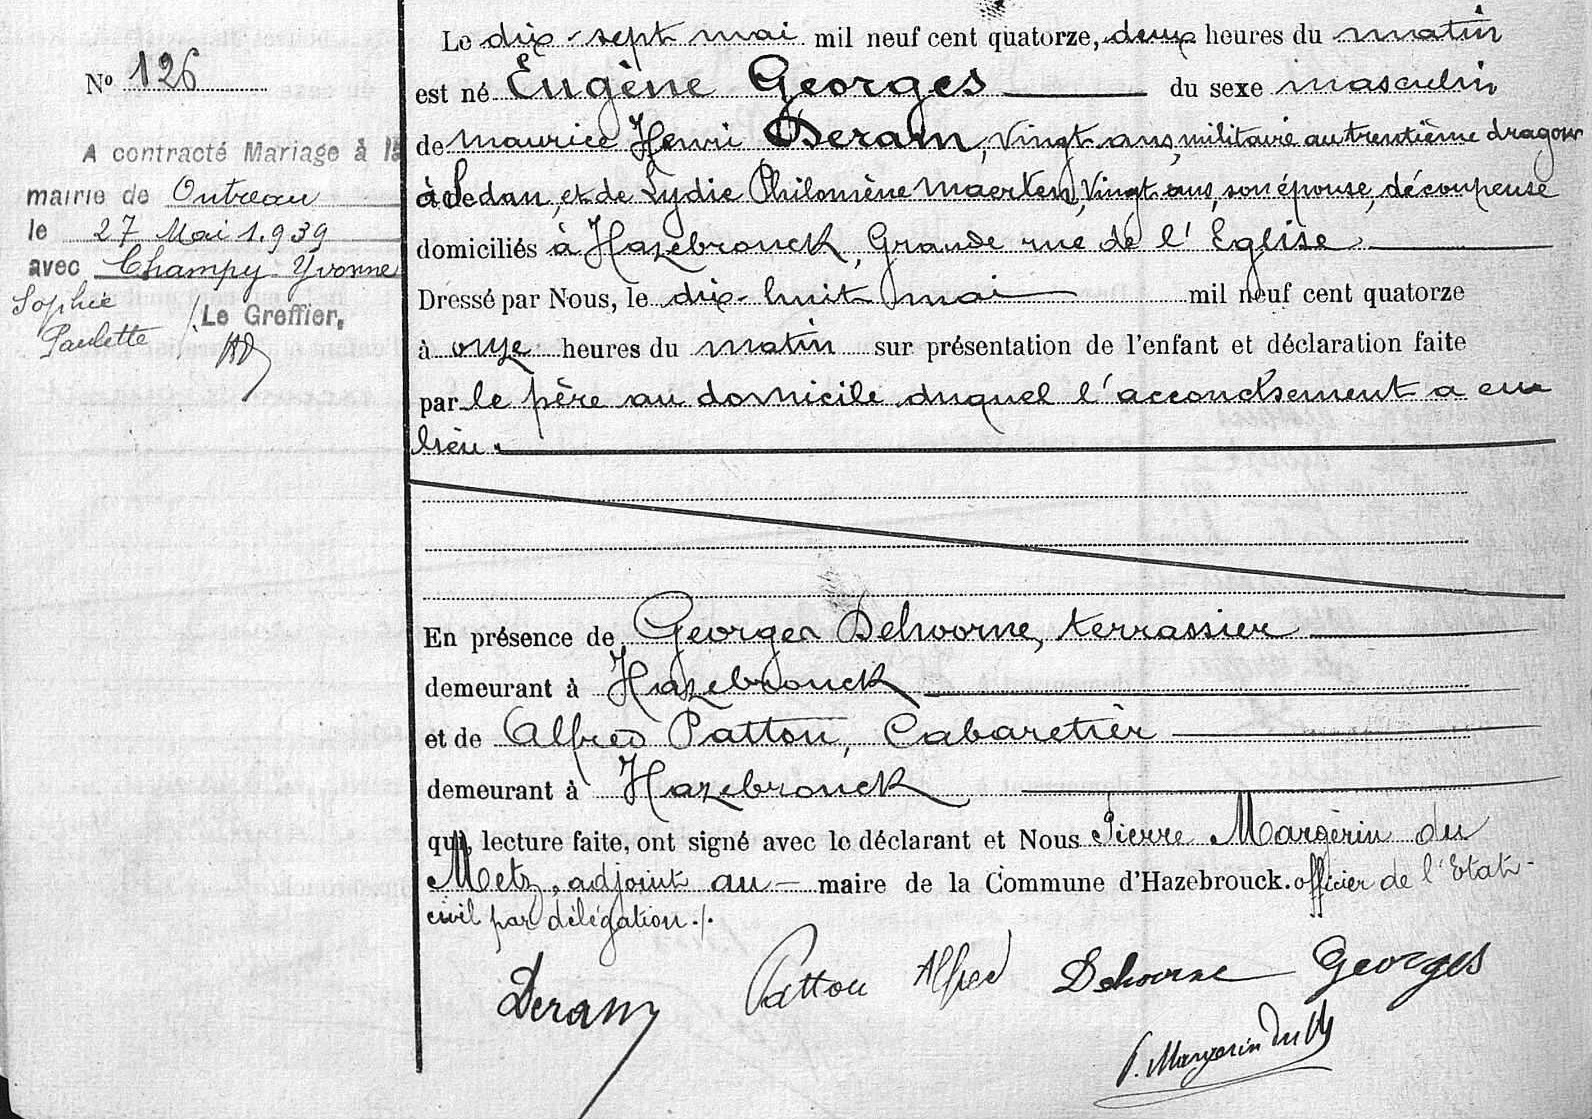 Nº 126
A contracté Mariage à la
mairie de Outreau
le 27 Mai 1.939
avec Champy Yvonne
Sophie
Paulette
Le Greffier,
Le dix-sept mai mil neuf cent quatorze, deux heures du matin
est né Eugène Georges du sexe masculin
de Maurice Henri Deram, vingt ans, militaire au trentième dragon
à Sedan, et de Lydie Philomène Maerten, vingt ans, son épouse, découpeuse
domiciliés à Hazebrouck, Grande rue de l'Eglise.
Dressé par Nous, le dix-huit mai mil neuf cent quatorze
à onze heures du matin sur présentation de l'enfant et déclaration faite
par le père au domicile duquel l'accouchement a eu
lieu.
En présence de Georges Dehoorne, terrassier
demeurant à Hazebrouck
et de Alfred Pattou, Cabaretier
demeurant à Hazebrouck
qui, lecture faite, ont signé avec le déclarant et Nous Pierre Margerin du
Metz, adjoint au maire de la Commune d'Hazebrouck. officier de l'Etat-
civil par délégation ./.
Deram Pattou Alfred Dehoorne Georges
P. Margerin du Metz